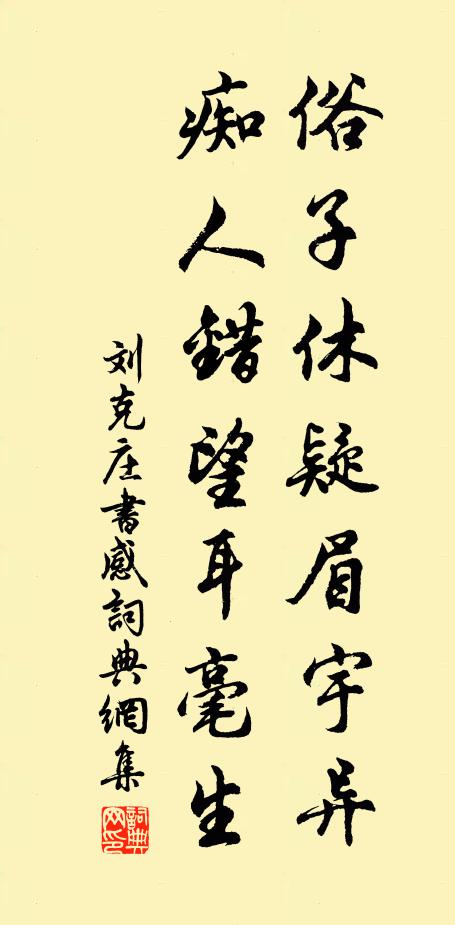 俗子休疑眉宇异
痴人錯望耳毫生
刘克庄書感詞典網集
詞典网印